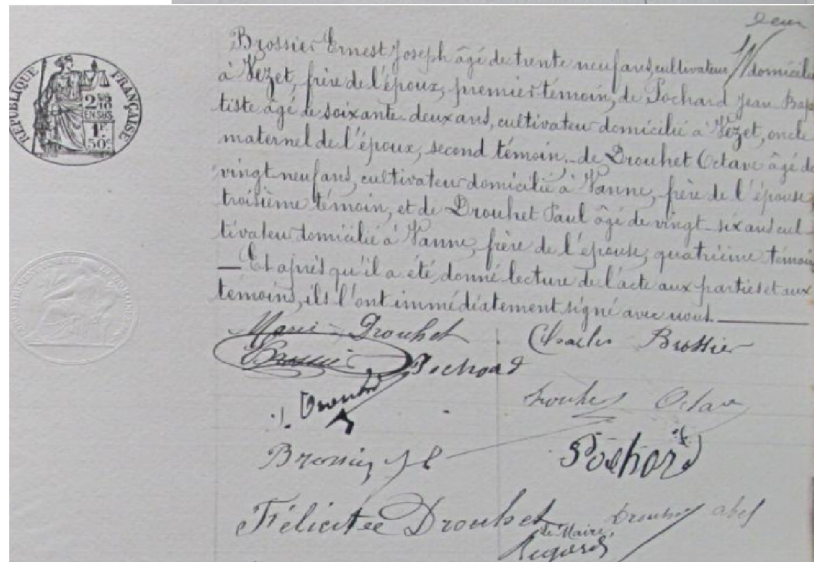 deux
RÉPUBLIQUE FRANÇAISE
2/10
EN SUS
1F
50c
Brossier Ernest Joseph âgé de trente neuf ans, cultivateur domicilié
à Vezet, frère de l'époux, premier témoin, de Pochard Jean Bap
tiste âgé de soixante-deux ans, cultivateur domicilié à Vezet, oncle
maternel de l'époux, second témoin, de Drouhet Octave âgé de
vingt neuf ans, cultivateur domicilié à Vanne, frère de l'épouse,
troisième témoin, et de Drouhet Paul âgé de vingt-six ans cul
tivateur domicilié à Vanne, frère de l'épouse, quatrième témoin
— Et après qu'il a été donné lecture de l'acte aux parties et aux
témoins, ils l'ont immédiatement signé avec nous.
Marie Drouhet Charles Brossier
Brossier Pochard
Drouhet Drouhet Octave
Brossier Pochard
Félicitée Drouhet Drouhet abel
le Maire,